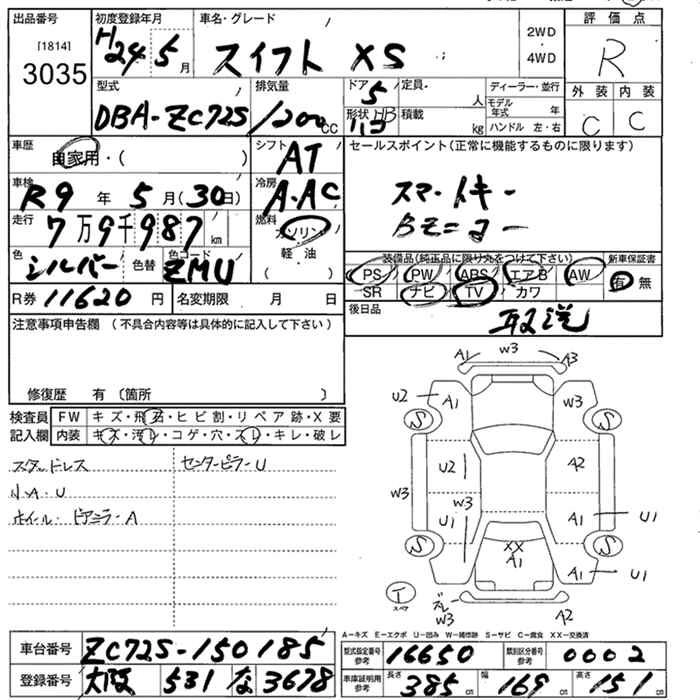 出品番号
[1814]
3035
初度登録年月
H24 5 月
車名・グレード
スイフト XS
2WD
・
4WD
評価点
R
外装 内装
C C
型式
DBA-ZC72S
排気量
1200 CC
ドア 5
形状 HB
定員 人
積載 kg
ディーラー・並行
モデル年式 年
ハンドル 左・右
車歴
自家用・( )
シフト
AT
車検
R9 年 5 月(30日)
冷房
A・AC
走行
7万9千987 km
燃料
ガソリン
軽油
( )
色
シルバー
色替
色コード
ZMU
R券 11620 円
名変期限 月 日
セールスポイント(正常に機能するものに限ります)
スマートキー
装備品(純正品に限り丸をつけて下さい)
新車保証書
PS PW ABS エアB AW
有 無
SR ナビ TV カワ
後日品
取説
注意事項申告欄(不具合内容等は具体的に記入して下さい)
修復歴 有〔箇所 〕
検査員記入欄
FW キズ・飛石・ヒビ割・リペア跡・X要
内装 キズ・汚レ・コゲ・穴・スレ・キレ・破レ
スタッドレス
センターピラーU
小A・U
ホイール・ピアニラーA
A1 W3 A3
U2 A1 W3
S S
U2 A2
W3 W3
U1 A1 U1
S S
XX
A1
A1 U1
T
スペア
ズレ
W3 A2
A-キズ E-エクボ U-凹み W-補修跡 S-サビ C-腐食 XX-交換済
車台番号 ZC72S-150185
登録番号 大阪 531 な 3678
型式指定番号 参考 16650
類別区分番号 参考 0002
車庫証明用 参考 長さ 385 cm 幅 169 cm 高さ 151 cm